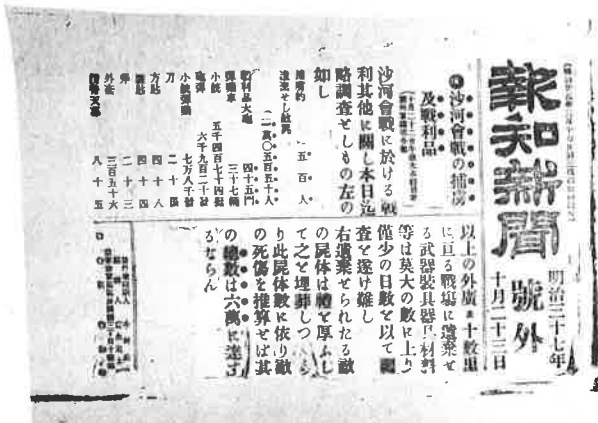 報知新聞
號外
明治三十七年
十月二十三日
沙河會戰の捕虜
及戰利品
沙河會戰に於ける戰
利其他に關し本日迄
略調査せしもの左の
如し
捕虜約 五百人
遺棄せし敵屍
(一萬〇五百五十人)
戰利品大砲 四十五門
彈藥車 三十七輛
小銃 五千四百七十四挺
砲彈 六千九百二十發
小銃彈藥 七萬八千發
刀 二十
方匙 四十八
圓匙 四十四
斧 二十三
外套 三百五十六
携帶天幕 八十五
以上の外廣き十數里
に亘る戰場に遺棄せ
る武器裝具器具材料
等は莫大の數に上り
僅少の日數を以て
査を遂け難し
右遺棄せられたる敵
の屍体は禮を厚ふし
て之を埋葬しつゝあ
り此屍体數に依り敵
の死傷を推算せば其
の總數は六萬に達す
るならん